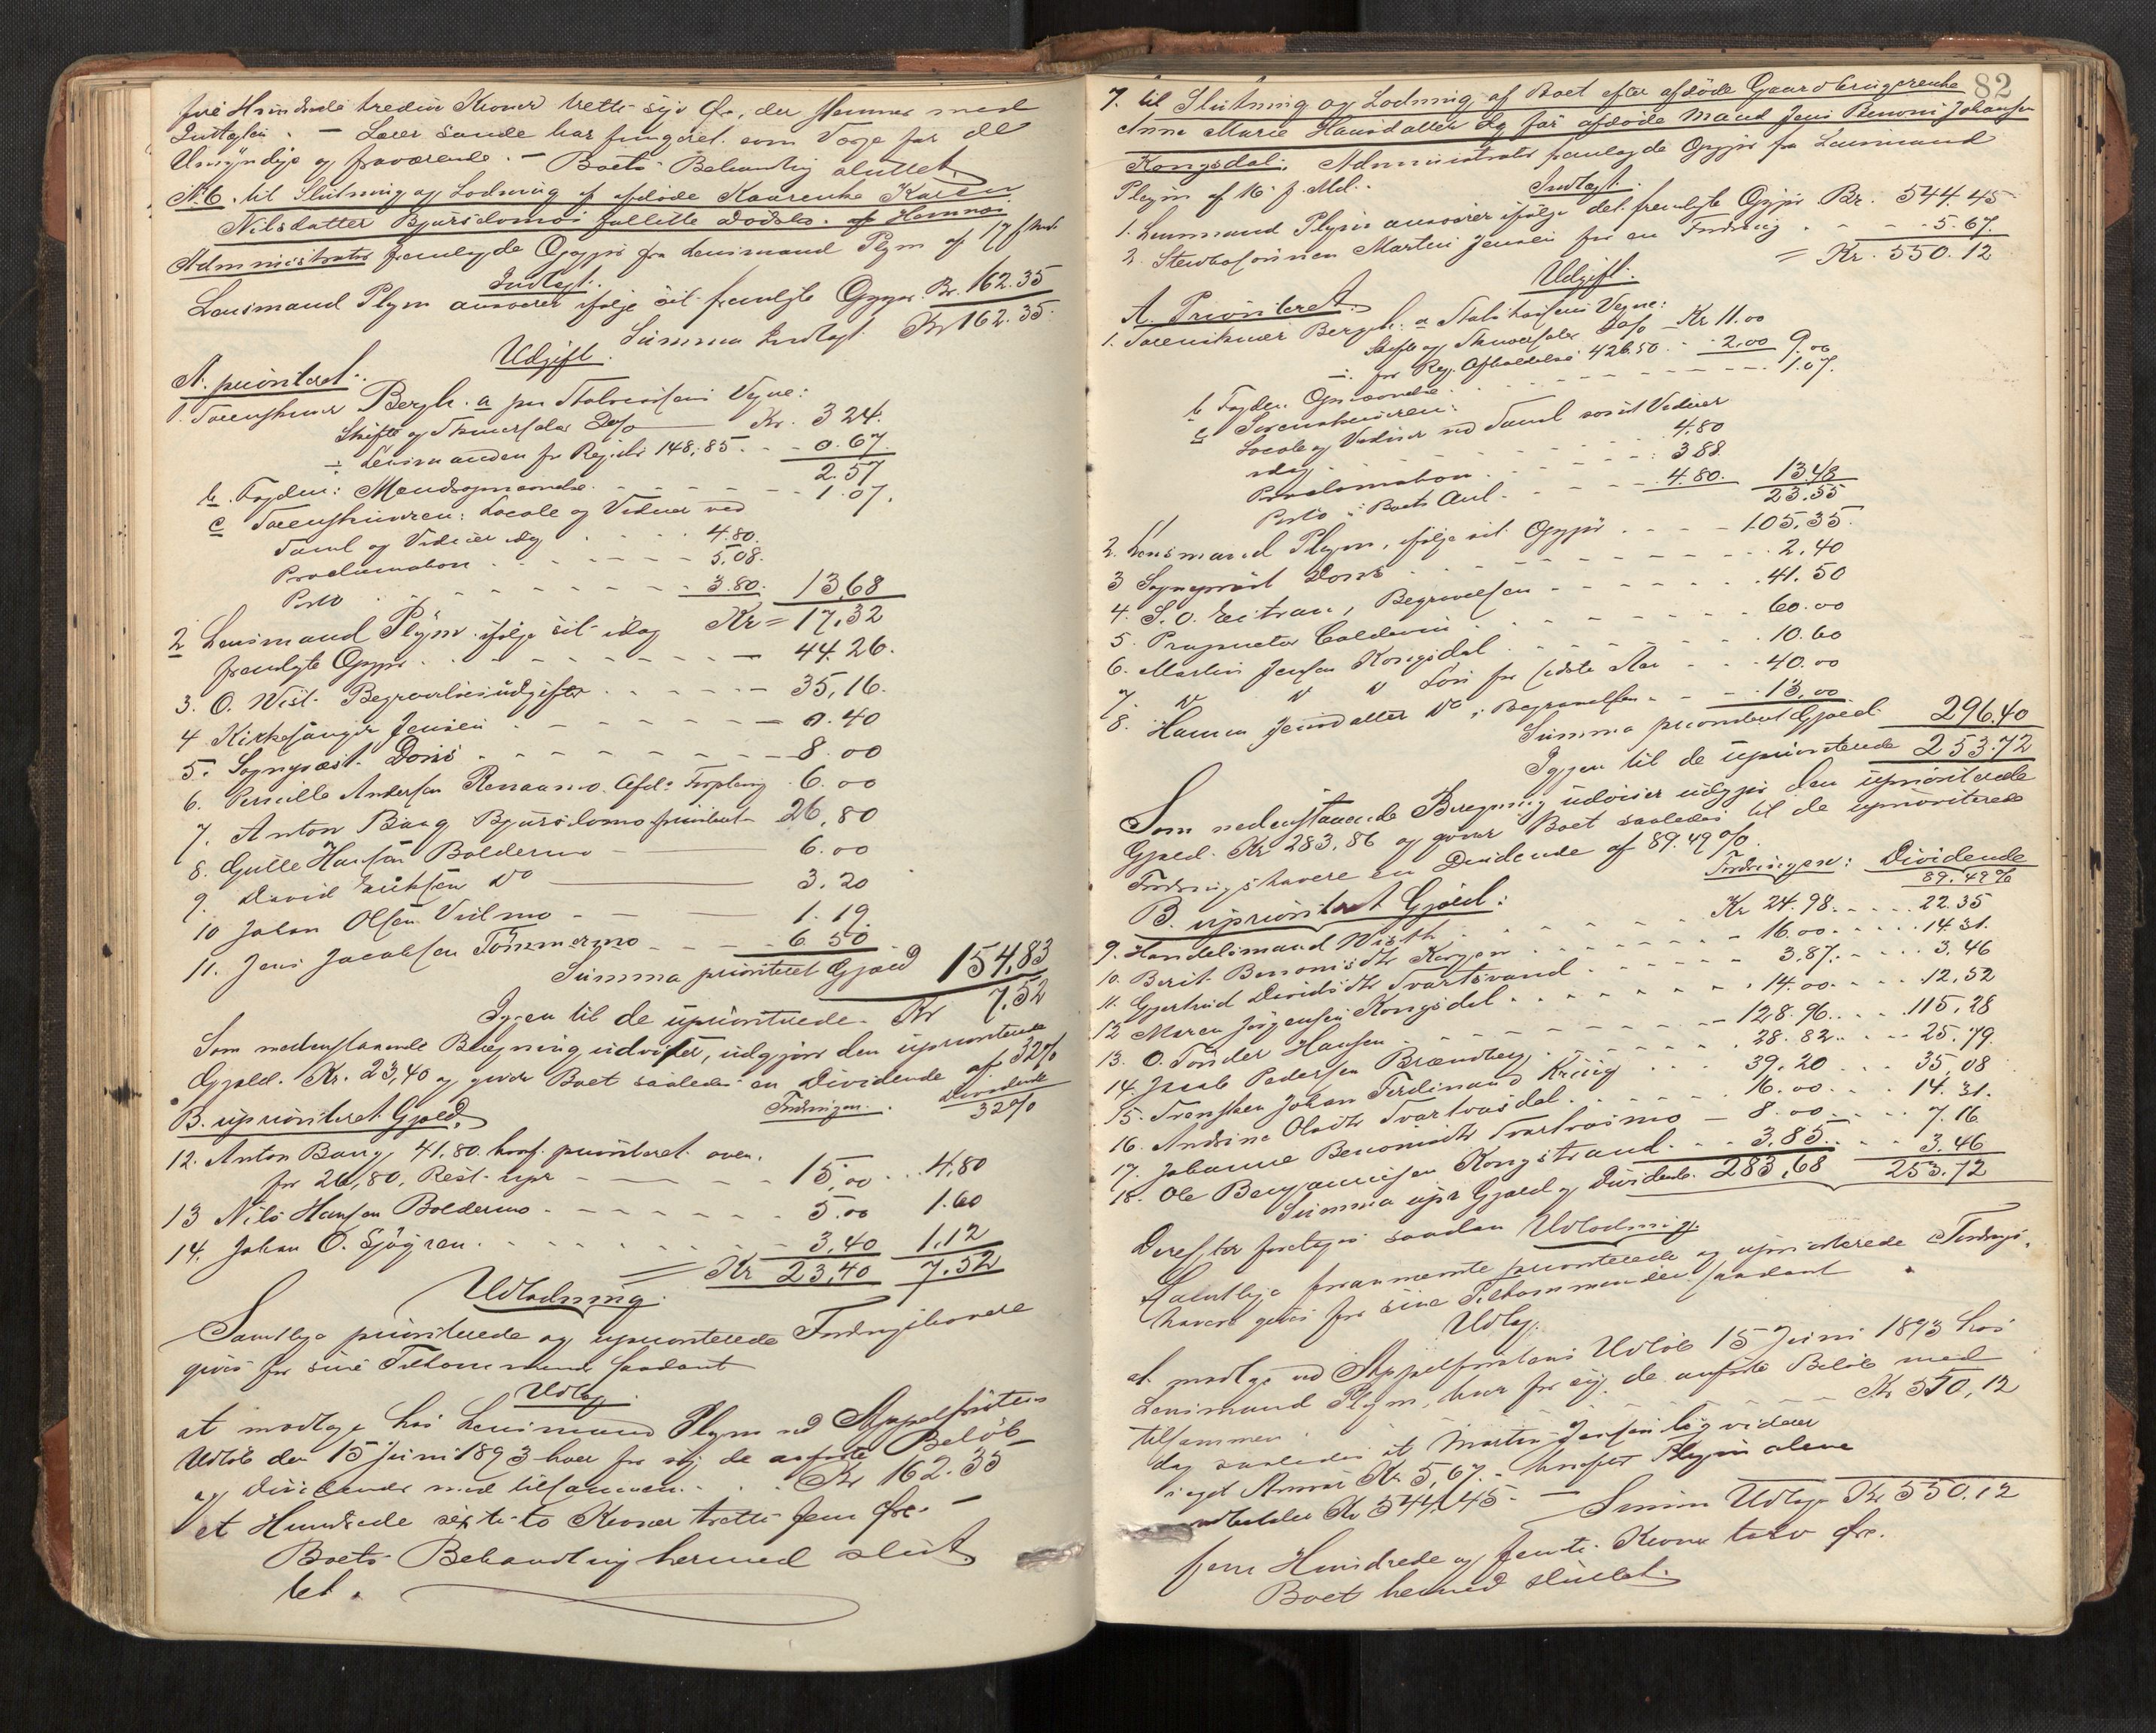 fire Hundrede tredive Kroner tretti syv Øre, der stemmer med
Indtægten. — Lærer Sande har fungeret som Værge for de
Umyndige og fraværende. — Boets Behandling sluttet
N. 6. til Slutning og Lodning af afdøde Kaarenke Karen
Nilsdatter Bjursdomoi fallitte Dødsbo. af Hemnæs
Administrator fremlagde Opgjør fra Lensmand Plym af 17 f Md.
Indtægt:
Lensmand Plym ansvarer ifølge sit fremlagte Opgjør. Kr. 162.35
Summa Indtægt Kr 162.35.
Udgift.
A. prioriteret.
1. Sorenskriver Bergh. a paa Statskassens Vegne:
Skifte og Skriversalær Kr. 3 24.
÷ Lensmanden for Regist. 148,85 . - 0.67.
2.57
b. Fogden: Mandsopnævnelse. - - - - - 1.07.
c Sorenskriveren: Locale og Vidner ved
Saml og Vidner idag . . . . 4.80.
Proclamation . . - - - - 5,08.
Porto . - - - - - - - 3.80. 13,68
Kr = 17,32
2 Lensmand Plym ifølge sit idag
fremlagte Opgjør. . - - - - - - 44.26.
3. O. Wist. Begravelsesudgifter . . . . - - 35,16.
4 Kirkesanger Jensen - - - - - - 0.40
5. Sogneprest Doris - - - - - - - - 8.00
6. Pernille Andersen Renaamo. Afd. Forpleining 6.00
7. Anton Baag Bjursdomo prioriteret 26,80
8. Gulle Hansen Boldermo — 6.00
9. David Eriksen Do — 3.20
10 Johan Olsen Vulmo - — — 1.19.
11. Jens Jacobsen Tömmermo - - - - 6 50
Summa prioriteret Gjæld 154,83
Igjen til de upriorterede. Kr 7,52
Som nedenstaaende Beregning udviser, udgjør den upriorterede
Gjæld. Kr. 23,40 og giver Boet saaledes en Dividende af 32%
B. uprioriteret Gjæld. Fordringer. Dividende
32%
12. Anton Baag, 41,80. heraf prioriteret oven.
for 26,80, Rest upr - — - - - - 15,00 . . . 4,80
13 Nils Hansen Boldermo - - - - - - - 5.00 1.60
14. Johan O. Sjøgren. - . . . - - - - 3,40 1,12
Kr 23,40 7.52
Udlodning.
Samtlige prioriterede og upriorterede Fordringshavere
gives for sine Tilkommende saadant
Udlæg.
at modtage hos Lensmand Plym ved Appelfristens
Udløb den 15 Juni 1893 hver for sig de anførte Beløb
og Dividende med tilsammen. . . . Kr 162.35
et Hundrede sexti-to Kroner tretti fem Øre. —
Boets Behandling hermed slut
tet.
82
7. til Slutning og Lodning af Boet efter afdøde Gaardbrugerenke
Anne Marie Hansdatter og før afdøde Mand Jens Benoni Johansen
Kongsdal. Administrator fremlagde Opgjør fra Lensmand
Plym af 16 f. Md.. Indtægt.
1. Lensmand Plym ansvarer ifølge det fremlagte Opgjør Kr. 544.45
2. Stervbosønnen Martin Jensen for en Fordring . - - - - 5.67.
= Kr. 550.12
Udgift.
A. Prioriteret.
1. Sorenskriver Bergh: a Statskassens Vegne:
Skifte og Skriversalær - Kr 11.00
÷ for Reg. Afholdelse 426.50 . - 2,00 9,00
b Fogden Opnævnelse - - - - - - - - - 1.07.
c Sorenskriveren:
Locale og Vidner ved Saml samt Vidner
idag . . . . . . . . 4.80
Proclamation . . . - - - - - : 3.88.
Porto i Boets Anl. . . - - - 4.80. 13,48
23.55
2. Lensmand Plym, ifølge sit Opgjør . - - - 105,35.
3 Sogneprest Doris - - - - - - - - - . 2.40
4. S. O. Eitran, Begravelsen - - - - . 41.50
5. Proprietær Coldevin - - - - - - - . 60.00
6. Martin Jensen Kongsdal . . - - - - - 10.60
7. " " " Løn for sidste Aar - - . 40.00
8. Hanna Jensdatter Do, i Begravelsen - - - . 13,00
Summa prioriteret Gjæld 296.40
Igjen til de upriorterede 253.72
Som nedenstaaende Beregning udviser udgjør den uprioriterede
Gjæld. Kr 283,86 og giver Boet saaledes til de uprioriterede
Fordringshavere en Dividende af 89.49 %.
B. uprioriteret Gjæld: Fordringer: Dividende
89.49%
9. Handelsmand Wisth . . - - - - - Kr 24.98. - - - . 22.35
10. Berit Benonisdtr Korgen . . - - - - - 16.00. . . . . 14 31.
11. Gjertrud Davidsdtr Svartsvand . . - - - - 3,87. - - - . 3,46
12 Maren Jörgensen Kongsdal . . - - - - - 14.00. . . . 12,52
13. O. Tönder Hansen - - - - - - - 128.96. . . . 115,28
14. Jacob Pedersen Brændberg . - - - - - 28.82. . - . 25.79.
15. Svensken Johan Ferdinand Krüg . . . 39,20 . . . 35,08
16. Andrine Olsdtr Svartvasdal. . - - - - 16.00. . . 14.31.
17. Johanne Benonisdtr Svartvasmo - 8.00. . . . 7.16
18. Ole Benjaminsen Kongstrand. . . - 3,85. . - - 3,46
Summa upr Gjæld og Dividende. 283,68 253.72
Derefter foretoges saadan Udlodning.
Samtlige forannævnte prioriterede og upriorterede Fordrings,
havere gives for sine Tilkommender saadant
Udlæg.
at modtage ved Appelfristens Udløb 15 Juni 1893 hos
Lensmand Plym, hver for sig de anførte Beløb med
tilsammen . - - - - - - - - - Kr 550,12
dog saaledes at Martin Jensen liqviderer
i eget Ansvar Kr 5,67. - hvorfor Plym alene
udbetaler Kr 544,45. — Summa Udlæg Kr 550.12
fem Hundrede og femti Kroner tolv Øre.
Boet hermed sluttet.